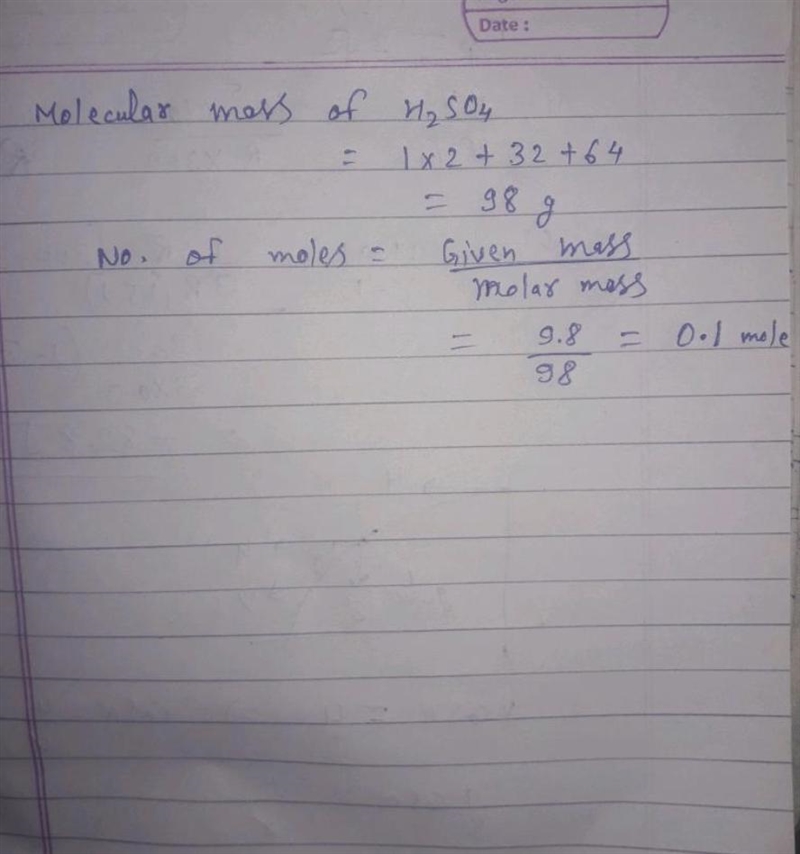 Date :
Molecular mass of H₂SO₄
= 1 x 2 + 32 + 64
= 98 g
No. of moles = Given mass
Molar mass
= 9.8 = 0.1 mole
98